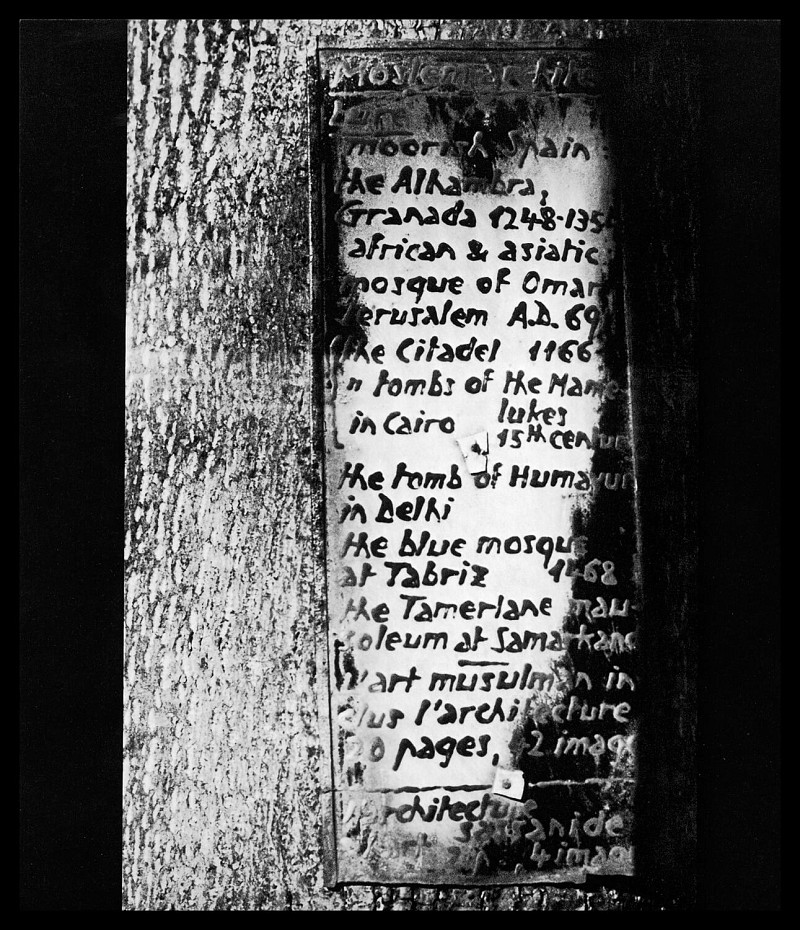 Moslem archite
ture
moorish Spain :
the Alhambra,
Granada 1248-1354
african & asiatic
mosque of Omar
Jerusalem A.D. 69
the Citadel 1166
tombs of the Mame
lukes
in Cairo
15th centur
the tomb of Humayun
in Delhi
the blue mosque
at Tabriz 1468
the Tamerlane mau-
soleum at Samarkand
l'art musulman in
plus l'architecture
20 pages, 2 image
l'architecture
sassanide
4 imag